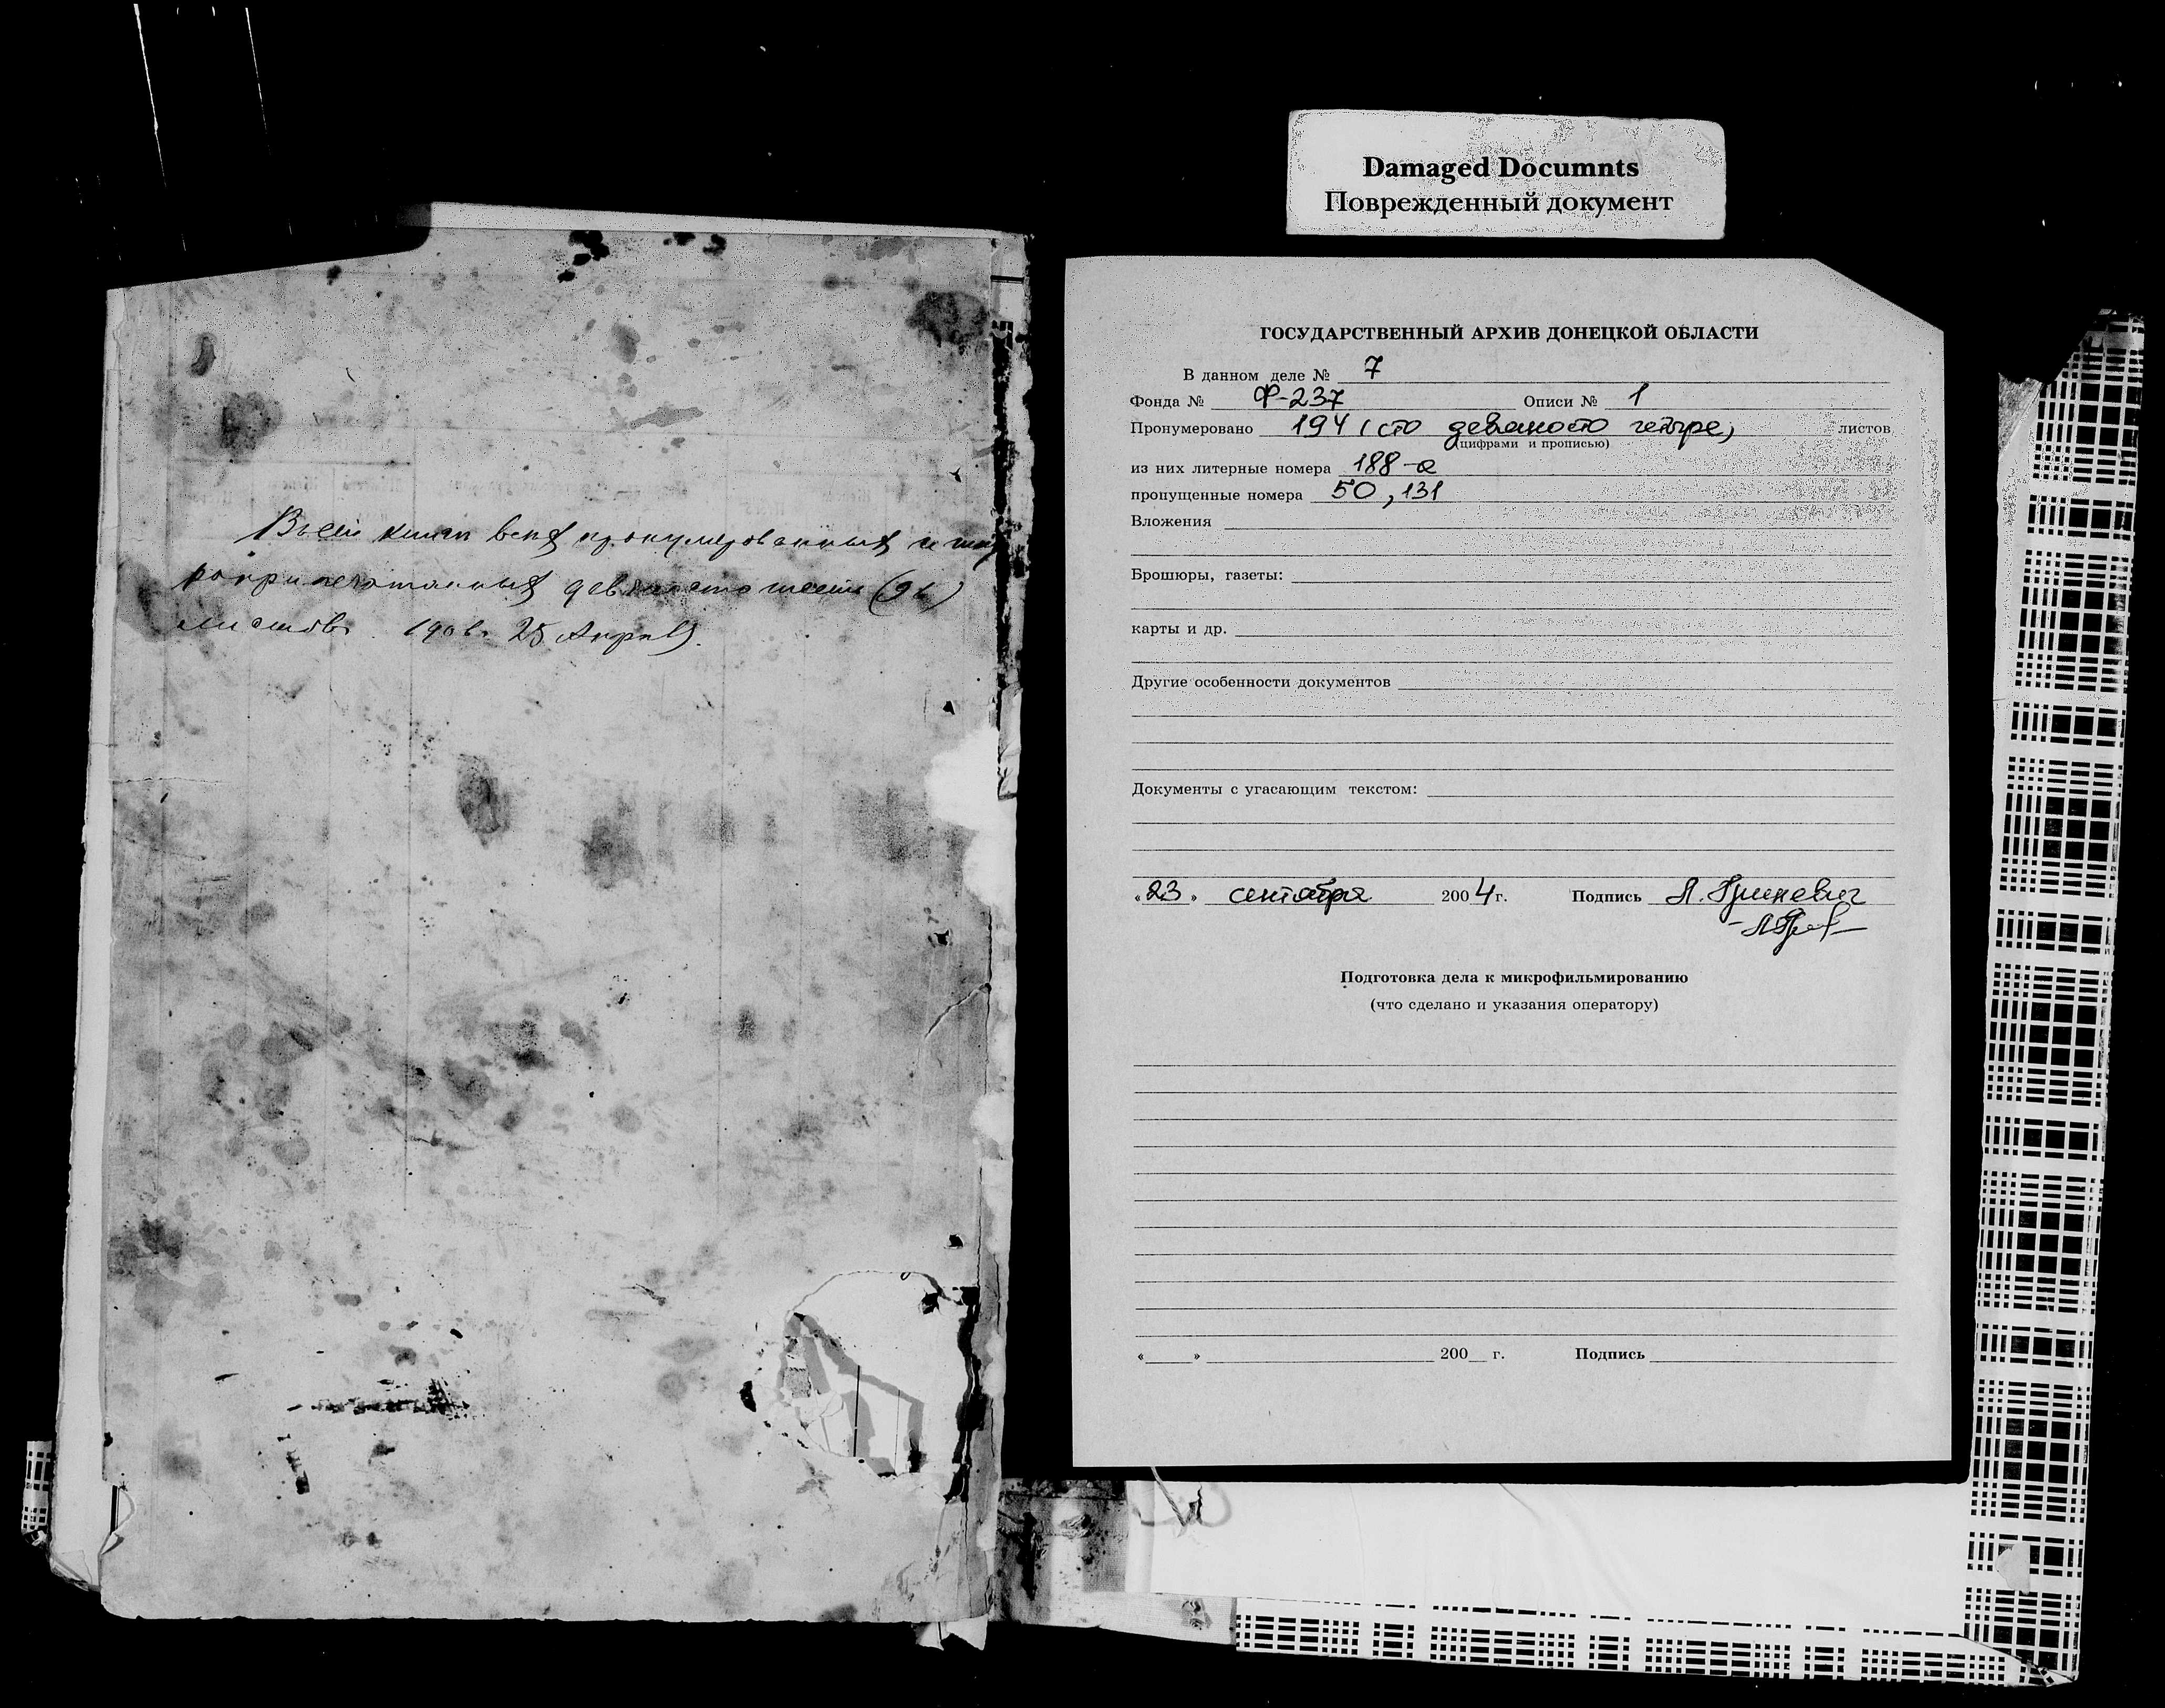 Въ сей книгѣ всѣхъ пронумерованныхъ и шну
роприпечатанныхъ девяносто шесть (96)
листовъ. 190 г. 25 Апрѣля.
Damaged Documnts
Поврежденный документ
ГОСУДАРСТВЕННЫЙ АРХИВ ДОНЕЦКОЙ ОБЛАСТИ
В данном деле № 7
Фонда № Ф-237 Описи № 1
Пронумеровано 194 (сто девяносто четыре) листов
(цифрами и прописью)
из них литерные номера 188-а
пропущенные номера 50, 131
Вложения
Брошюры, газеты:
карты и др.
Другие особенности документов
Документы с угасающим текстом:
«23» сентября 2004 г. Подпись Л. Гриневич
Подготовка дела к микрофильмированию
(что сделано и указания оператору)
«____» ____ 200__ г. Подпись